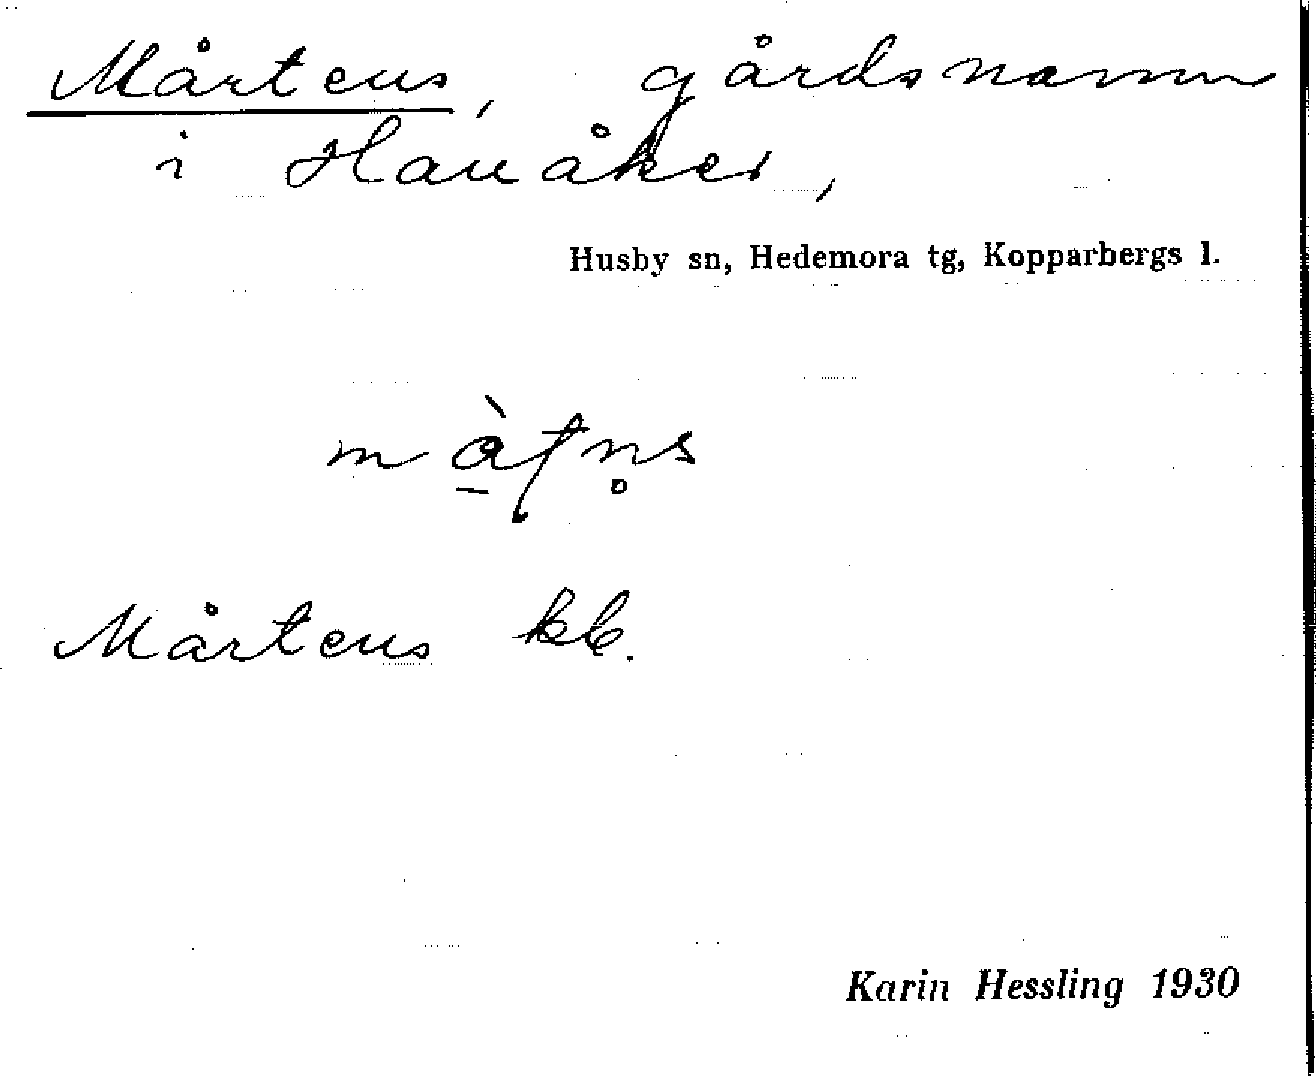 Mårtens, gårdsnamn
i Hanåker,
Husby sn, Hedemora tg, Kopparbergs l.
Mårtens kb.
Karin Hessling 1930